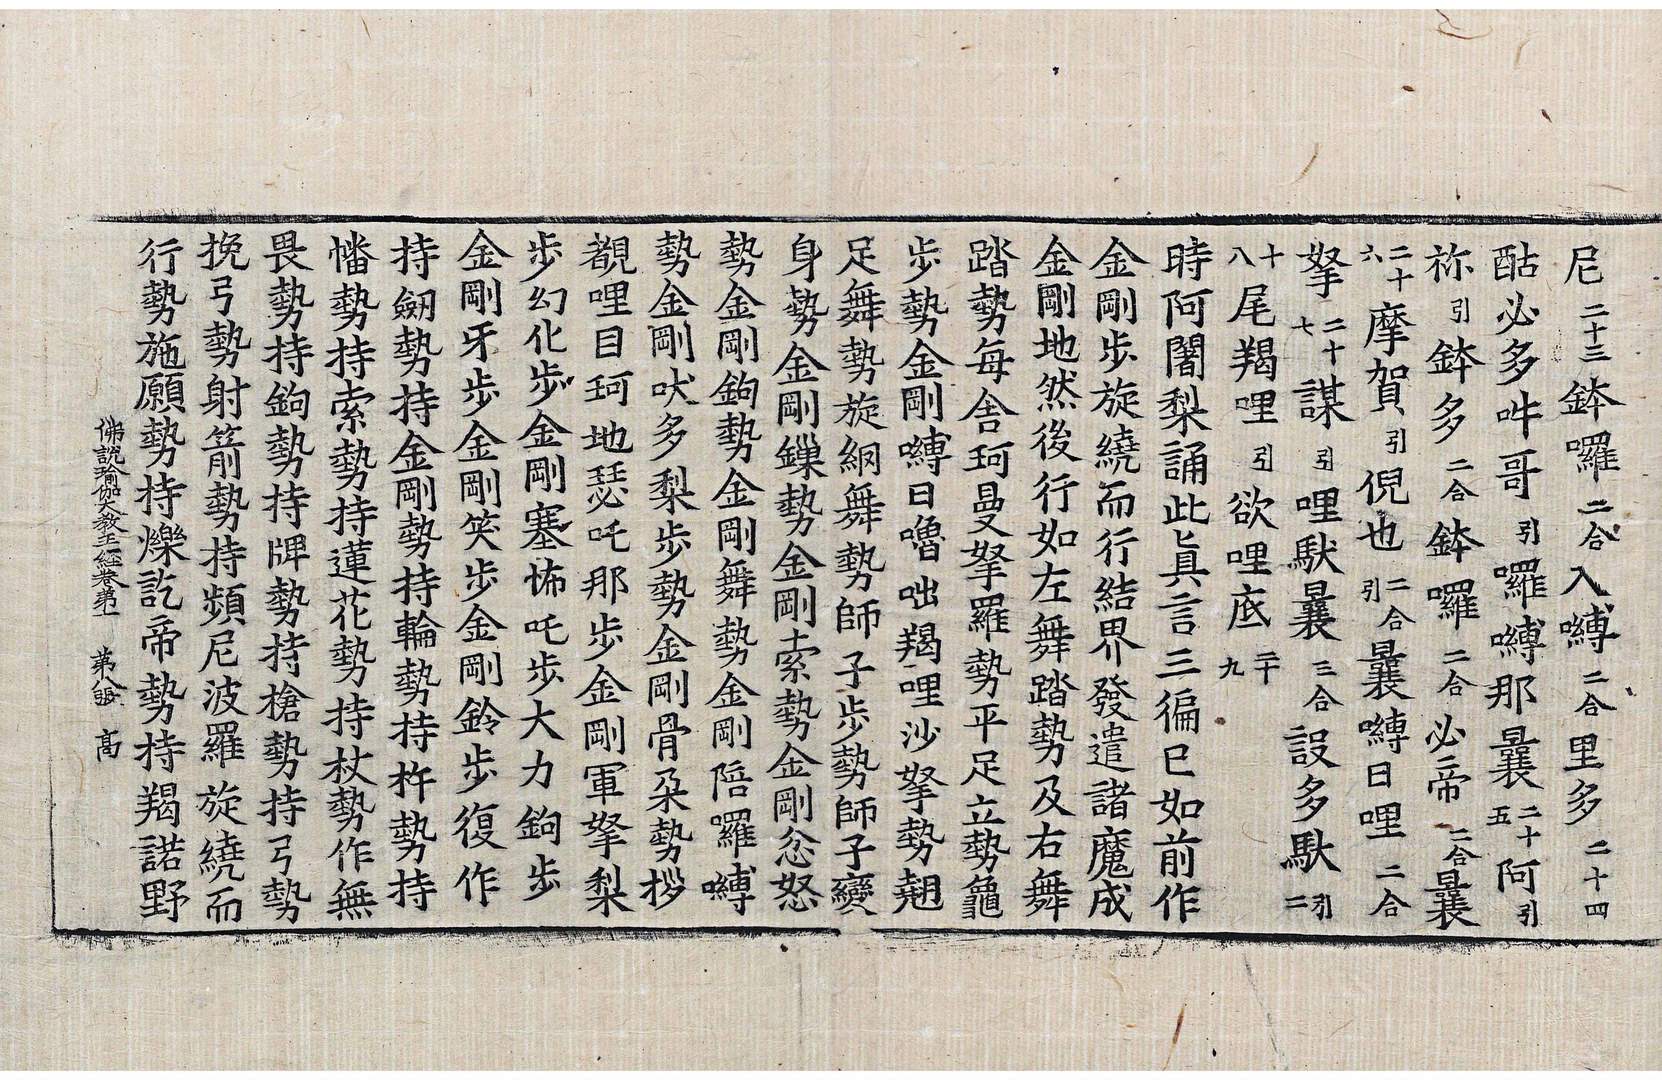 尼二十三鉢囉二合入嚩二合里多二十四
酤必多吽哥引囉嚩那曩二十五阿引
祢引鉢多二合鉢囉二合必帝二合曩
二十六摩賀引倪也二合引曩嚩日哩二合
拏二十七謀引哩馱曩三合設多馱引二
十八尾羯哩引欲哩底二十九
時阿闍梨誦此真言三徧已如前作
金剛步旋繞而行結界發遣諸魔成
金剛地然後行如左舞踏勢及右舞
踏勢每舍珂曼拏羅勢平足立勢龜
步勢金剛嚩日嚕咄羯哩沙拏勢翹
足舞勢旋綱舞勢師子步勢師子變
身勢金剛鏁勢金剛索勢金剛忿怒
勢金剛鉤勢金剛舞勢金剛陪囉嚩
勢金剛吠多梨步勢金剛骨朵勢拶
覩哩目珂地瑟吒那步金剛軍拏梨
步幻化步金剛塞怖吒步大力鉤步
金剛牙步金剛笑步金剛鈴步復作
持劒勢持金剛勢持輪勢持杵勢持
幡勢持索勢持蓮花勢持杖勢作無
畏勢持鉤勢持牌勢持槍勢持弓勢
挽弓勢射箭勢持頻尼波羅旋繞而
行勢施願勢持爍訖帝勢持羯諾野
佛說瑜伽大教王經卷第一 第八 高